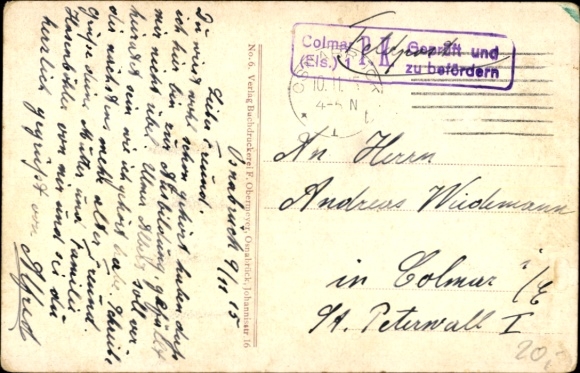 Osnabrück 9/11 15
Lieber Freund.
Du wirst wohl schon gehört haben daß
ich hier bin zur Ausbildung gefällt
mir nicht übel. soll ver
hieratet sein wie ich gehört habe. Schreibe
die nächstens mehr alter Freund.
Grüße deine Mutter und Familie
von mir und sei du
herzlich gegrüßt von
Alfred
No. 6. Verlag Buchdruckerei F. Obermeyer, Osnabrück, Johannisstr. 16
Feldpost
Colmar
(Els.) 1
P.K.
Geprüft und
zu befördern
10.11.
4-5 N
An Herrn
Andreas Wiedemann
in Colmar i/E
St. Peterwall I
20,-